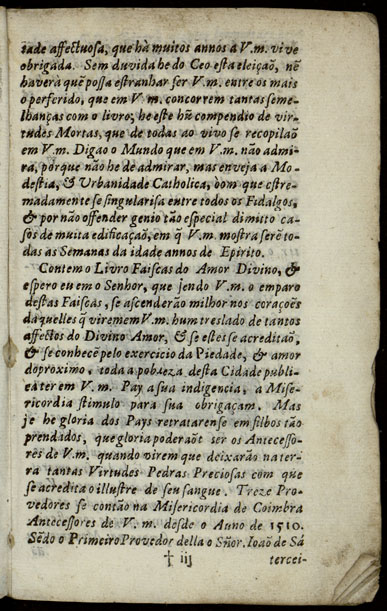 tade affectuosa, que hà muitos annos a V.m. vive
obrigada. Sem duvida he do Ceo esta eleiçaõ, nẽ
haverà quẽ possa estranhar ser V.m. entre os mais
o perferido, que em V. m. concorrem tantas seme-
lhanças com o livro; he este hũ compendio de vir-
tudes Mortas, que de todas ao vivo se recopilaõ
em V.m. Digao o Mundo que em V.m. não admi-
ra, porque não he de admirar, mas enveja a Mo-
destia, & Urbanidade Catholica, com que estre-
madamente se singularisa entre todos os Fidalgos,
& por não offender genio tão especial dimitto ca-
sos de muita edificaçaõ, em q̃ V.m. mostra serẽ to-
das as Semanas da idade annos de Epirito.
Contem o Livro Faiscas do Amor Divino, &
espero eu em o Senhor, que sendo V.m. o emparo
destas Faiscas, se ascenderão milhor nos corações
daquelles q̃ virem em V.m. hum treslado de tantos
affectos do Divino Amor, & se estes se acreditaõ,
& se conhecẽ pelo exercicio da Piedade, & amor
do proximo, toda a pobreza desta Cidade publi-
ca ter em V.m. Pay a sua indigencia, a Mise-
ricordia stimulo para sua obrigaçam. Mas
se he gloria dos Pays retratarense em filhos tão
prendados, que gloria poderaõt ser os Antecesso-
res de V.m. quando virem que deixarão na ter-
ra tantas Virtudes Pedras Preciosas com que
se acredita o illustre de seu sangue. Treze Pro-
vedores se contão na Misericordia de Coimbra
Antecessores de V. m. desde o Anno de 1510.
Sẽdo o Primeiro Provedor della o Sñor. Ioaõ de Sá
† iij tercei-